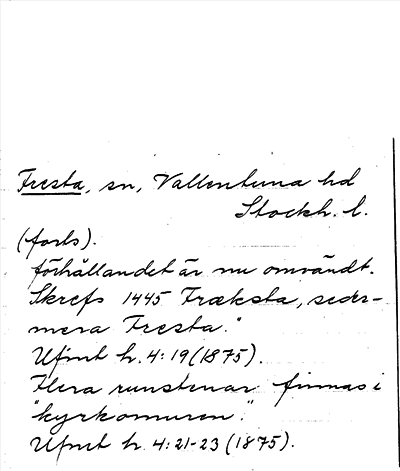 Fresta, sn, Vallentuna hd
Stockh. l.
(forts).
förhållandet är nu omvändt.
Skrefs 1445 Fræksta, seder-
mera Fresta."
Ufmt h. 4:19 (1875).
Flera runstenar finnas i
"kyrkomuren."
Ufmt h. 4:21-23 (1875).